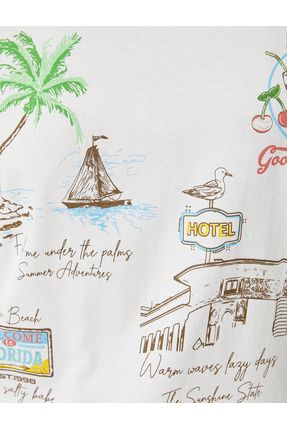 Goo
HOTEL
Time under the palms
Summer Adventures
Beach
COME
to
ORIDA
ST.1998
salty babe
Warm waves lazy days
The Sunshine State